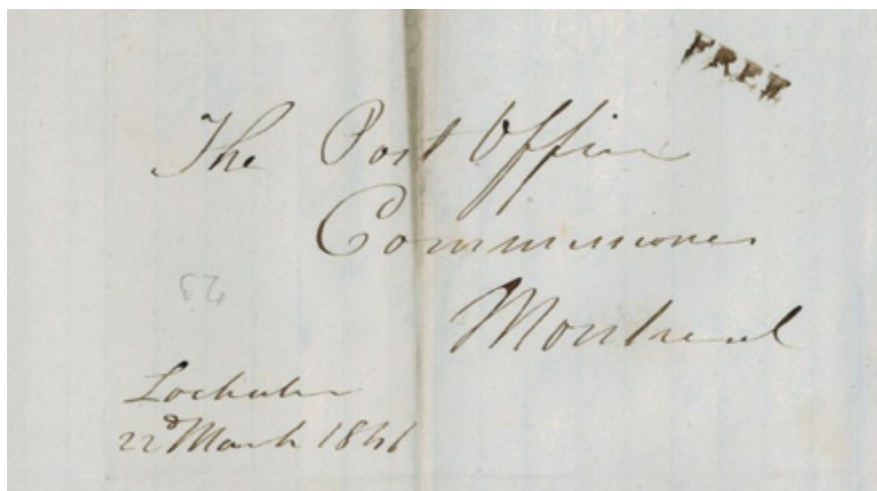 FREE
The Post Office
Commissioner
Montreal
Lochaber
22d March 1841